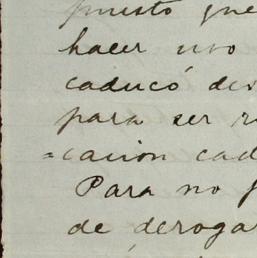 puesto que
hacer uso
caducó des
para ser r
=cacion cad
Para no p
de deroga